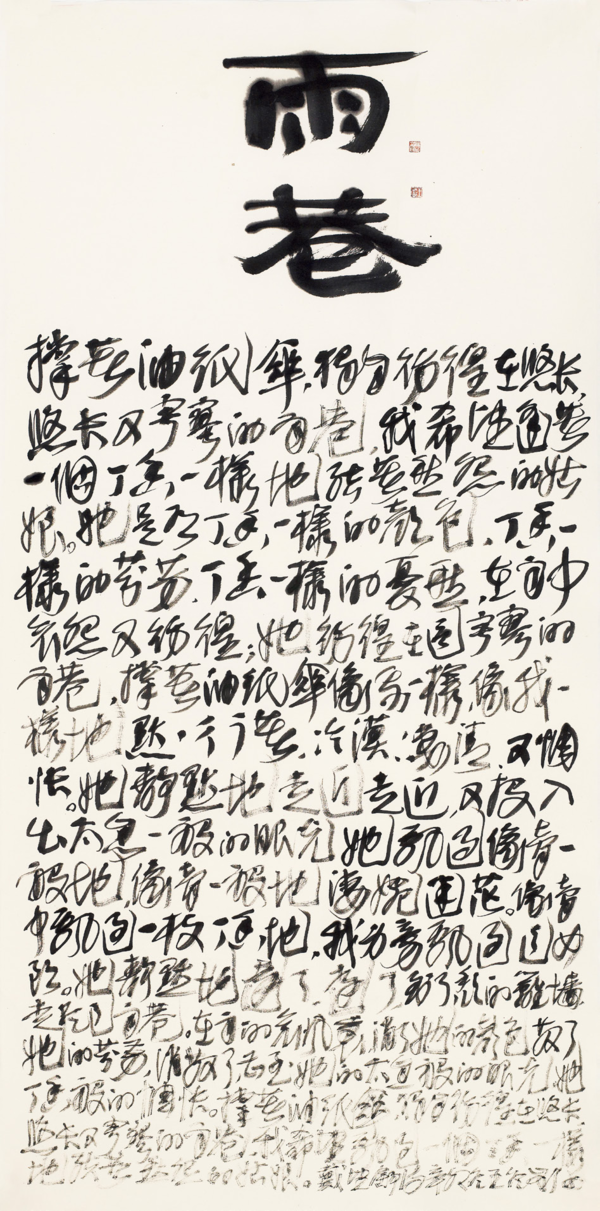 雨
巷
撑著油纸傘，獨自彷徨在悠长、
悠长又寂寥的雨巷，我希望逢著
一個丁香一樣地结著愁怨的姑
娘。她是有丁香一樣的颜色，丁香一
樣的芬芳，丁香一樣的憂愁，在雨中
哀怨又彷徨；她彷徨在這寂寥的
雨巷，撑著油纸傘像我一樣，像我一
樣地默默彳亍著，冷漠、凄清，又惆
怅。她静默地走近走近，又投
出太息一般的眼光她飘过像梦一
般地，像梦一般地凄婉迷茫。像梦
中飘过一枝丁香地，我身旁飘过這女
郎。她静默地遠了、遠了，到了颓的籬墙
走尽這雨巷。在雨的哀曲裏，消了她的颜色散了
她的芬芳，消散了甚至她的太息般的眼光她
丁香般的惆怅。撑著油纸傘獨自彷徨在悠长、
悠长又寂寥的雨巷，我希望飘过一個丁香一樣
地结著愁怨的姑娘。戴望舒